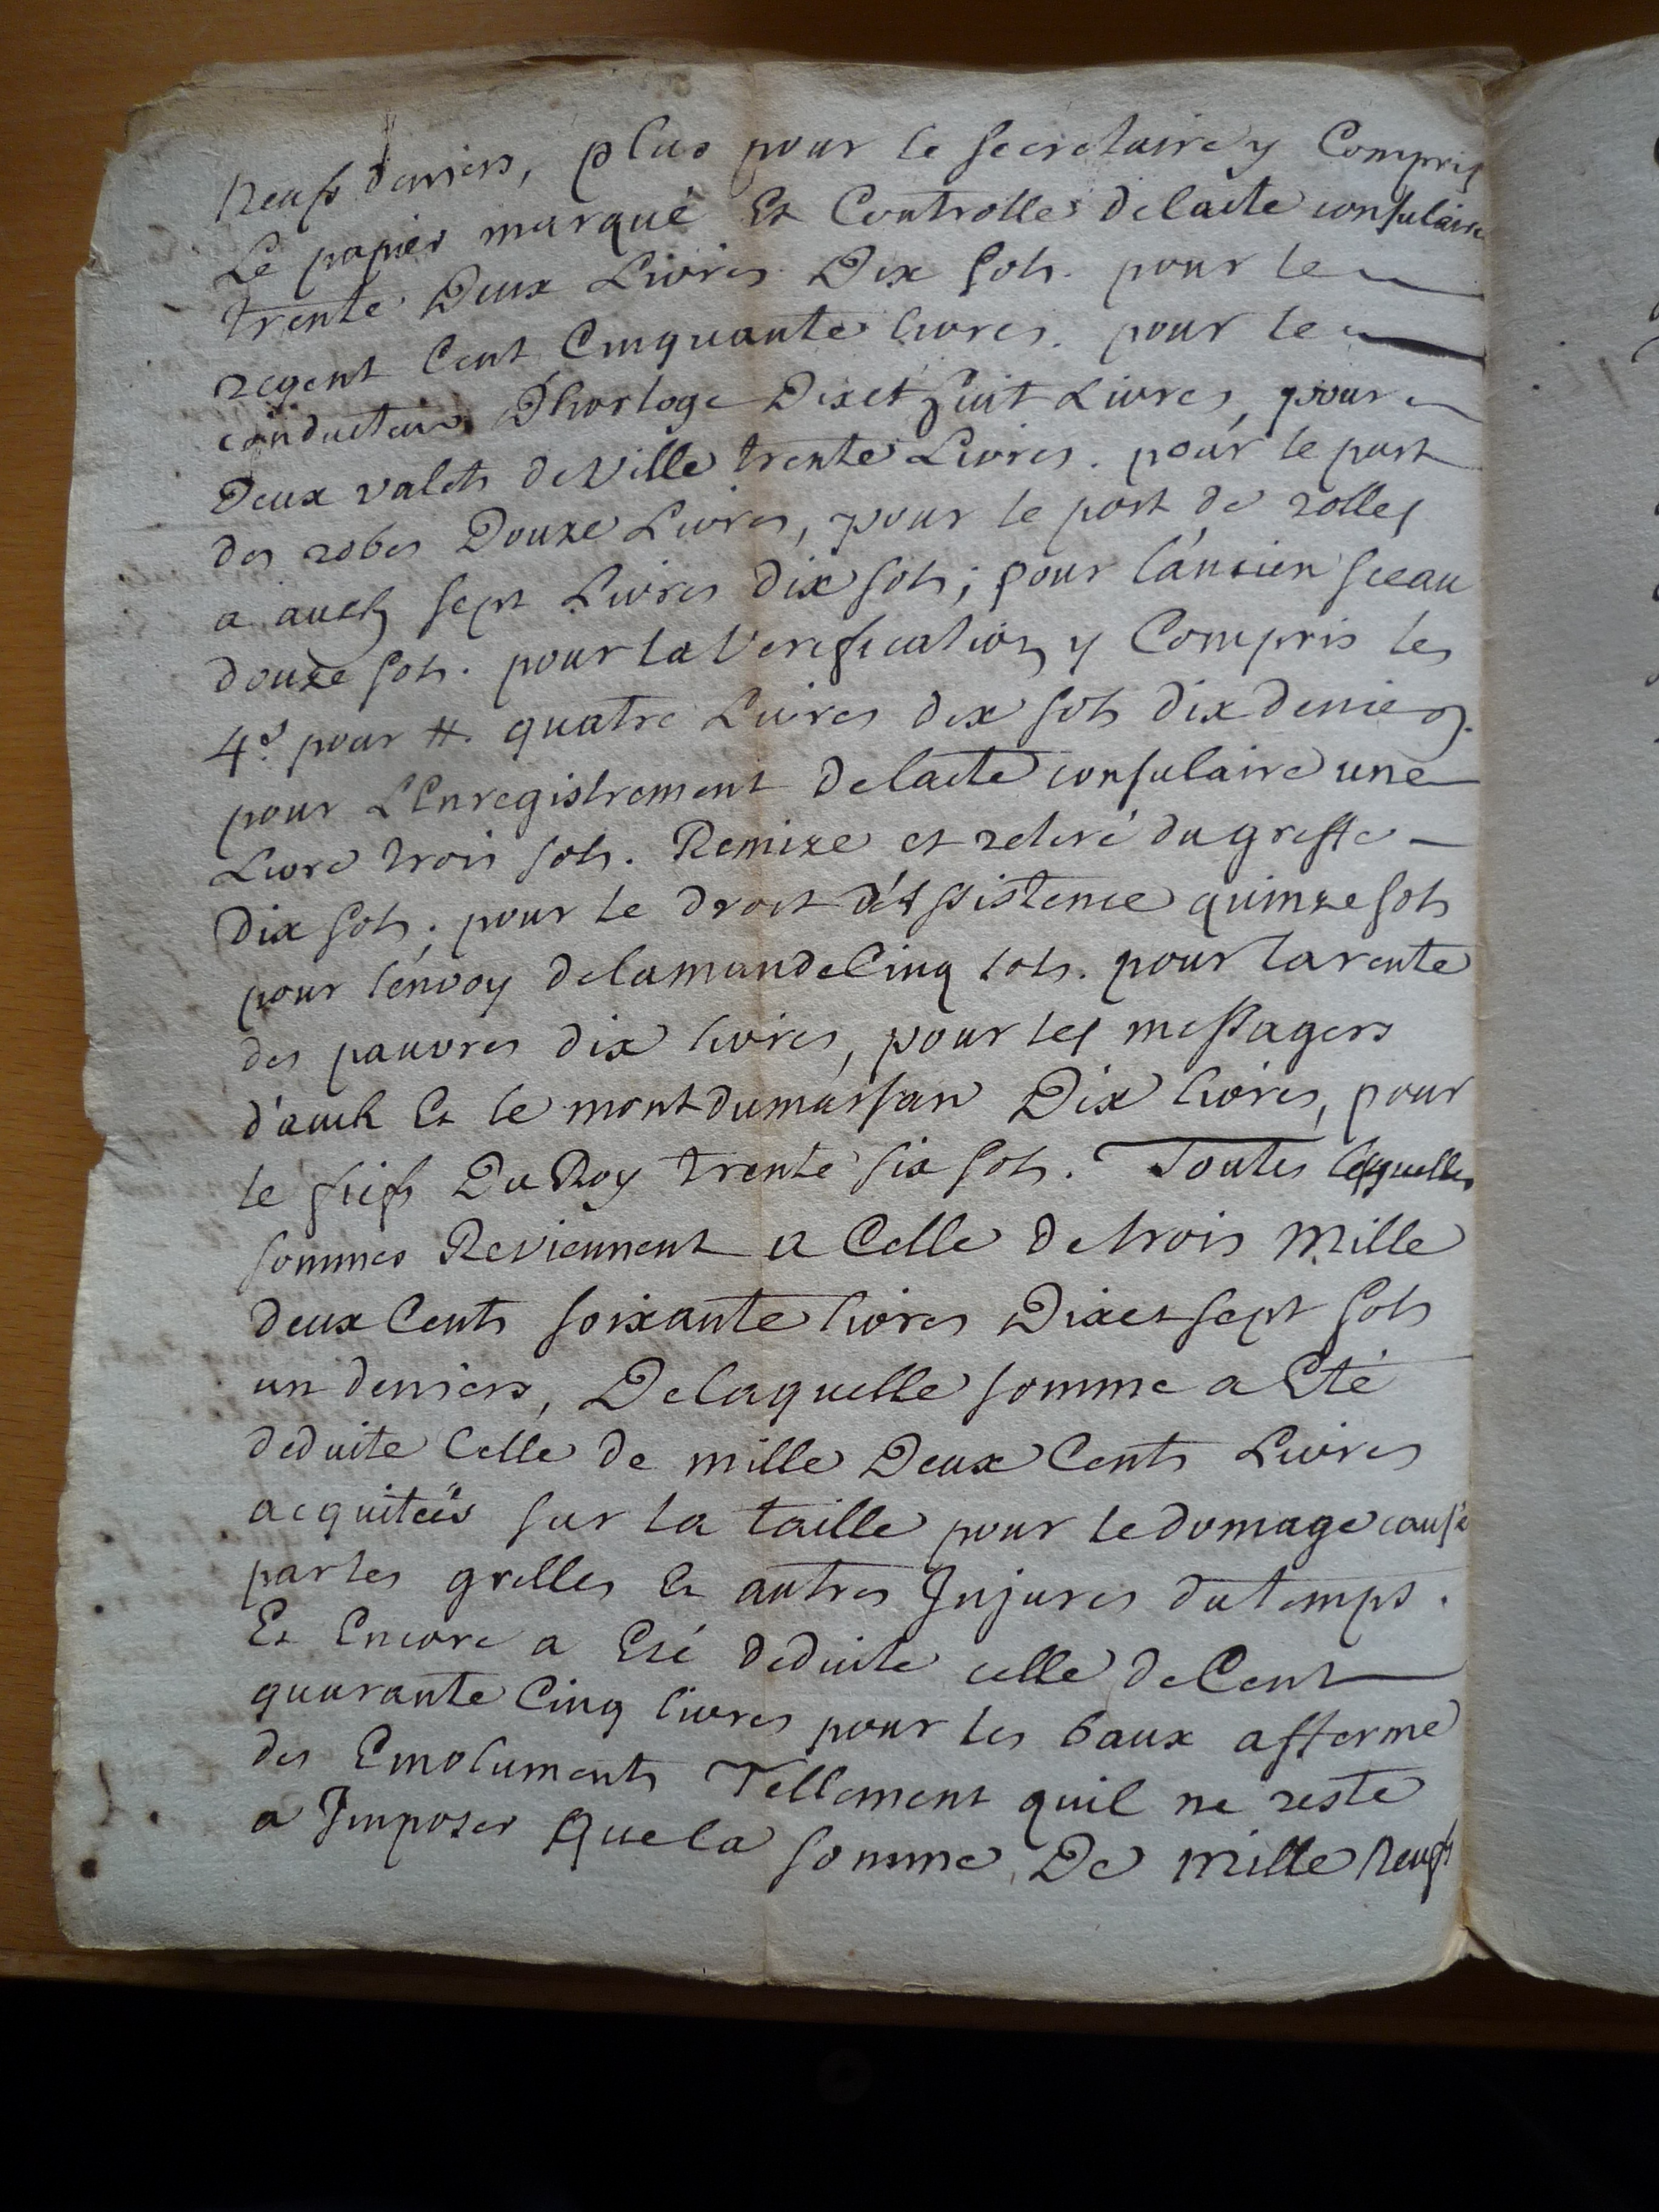 neufs deniers, plus pour le secretaire y Compris
Le papier marqué Et Controlle de lacte consulaire
trente Deux Livres Dix sols. pour le
regent Cent Cinquante livres. pour le
conducteur D'horloge Dix et huit Livres, pour
Deux valets de Ville trente Livres. pour le port
des robes Douze Livres, pour le port de rolles
a auch sept Livres dix sols; pour l'ancien sceau
douze sols. pour la Verification y Compris les
4d pour ₶. quatre Livres dix sols dix deniers.
pour L'Enregistrement de lacte consulaire une
Livre trois sols. Remize et retiré du greffe
Dix sols; pour le droit d'assistence quinze sols
pour l'envoy de lamande Cinq sols. pour la rente
des pauvres dix livres, pour les messagers
d'auch Et le mont du marsan Dix livres, pour
le fiefs Du Roy trente six sols. Toutes lesquelles
sommes Reviennent a Celle de trois Mille
deux Cents soixante livres Dix et sept sols
un deniers, De laquelle somme a Eté
deduite Celle de mille Deux Cents Livres
acquiteés sur la taille pour le domage causé
par les grelles Et autres Injures du temps.
Et Encore a Eté deduite celle de Cent
quarante Cinq livres pour les baux afferme
des Emoluments Tellement quil ne reste
a Imposer Que la somme De Mille neufs